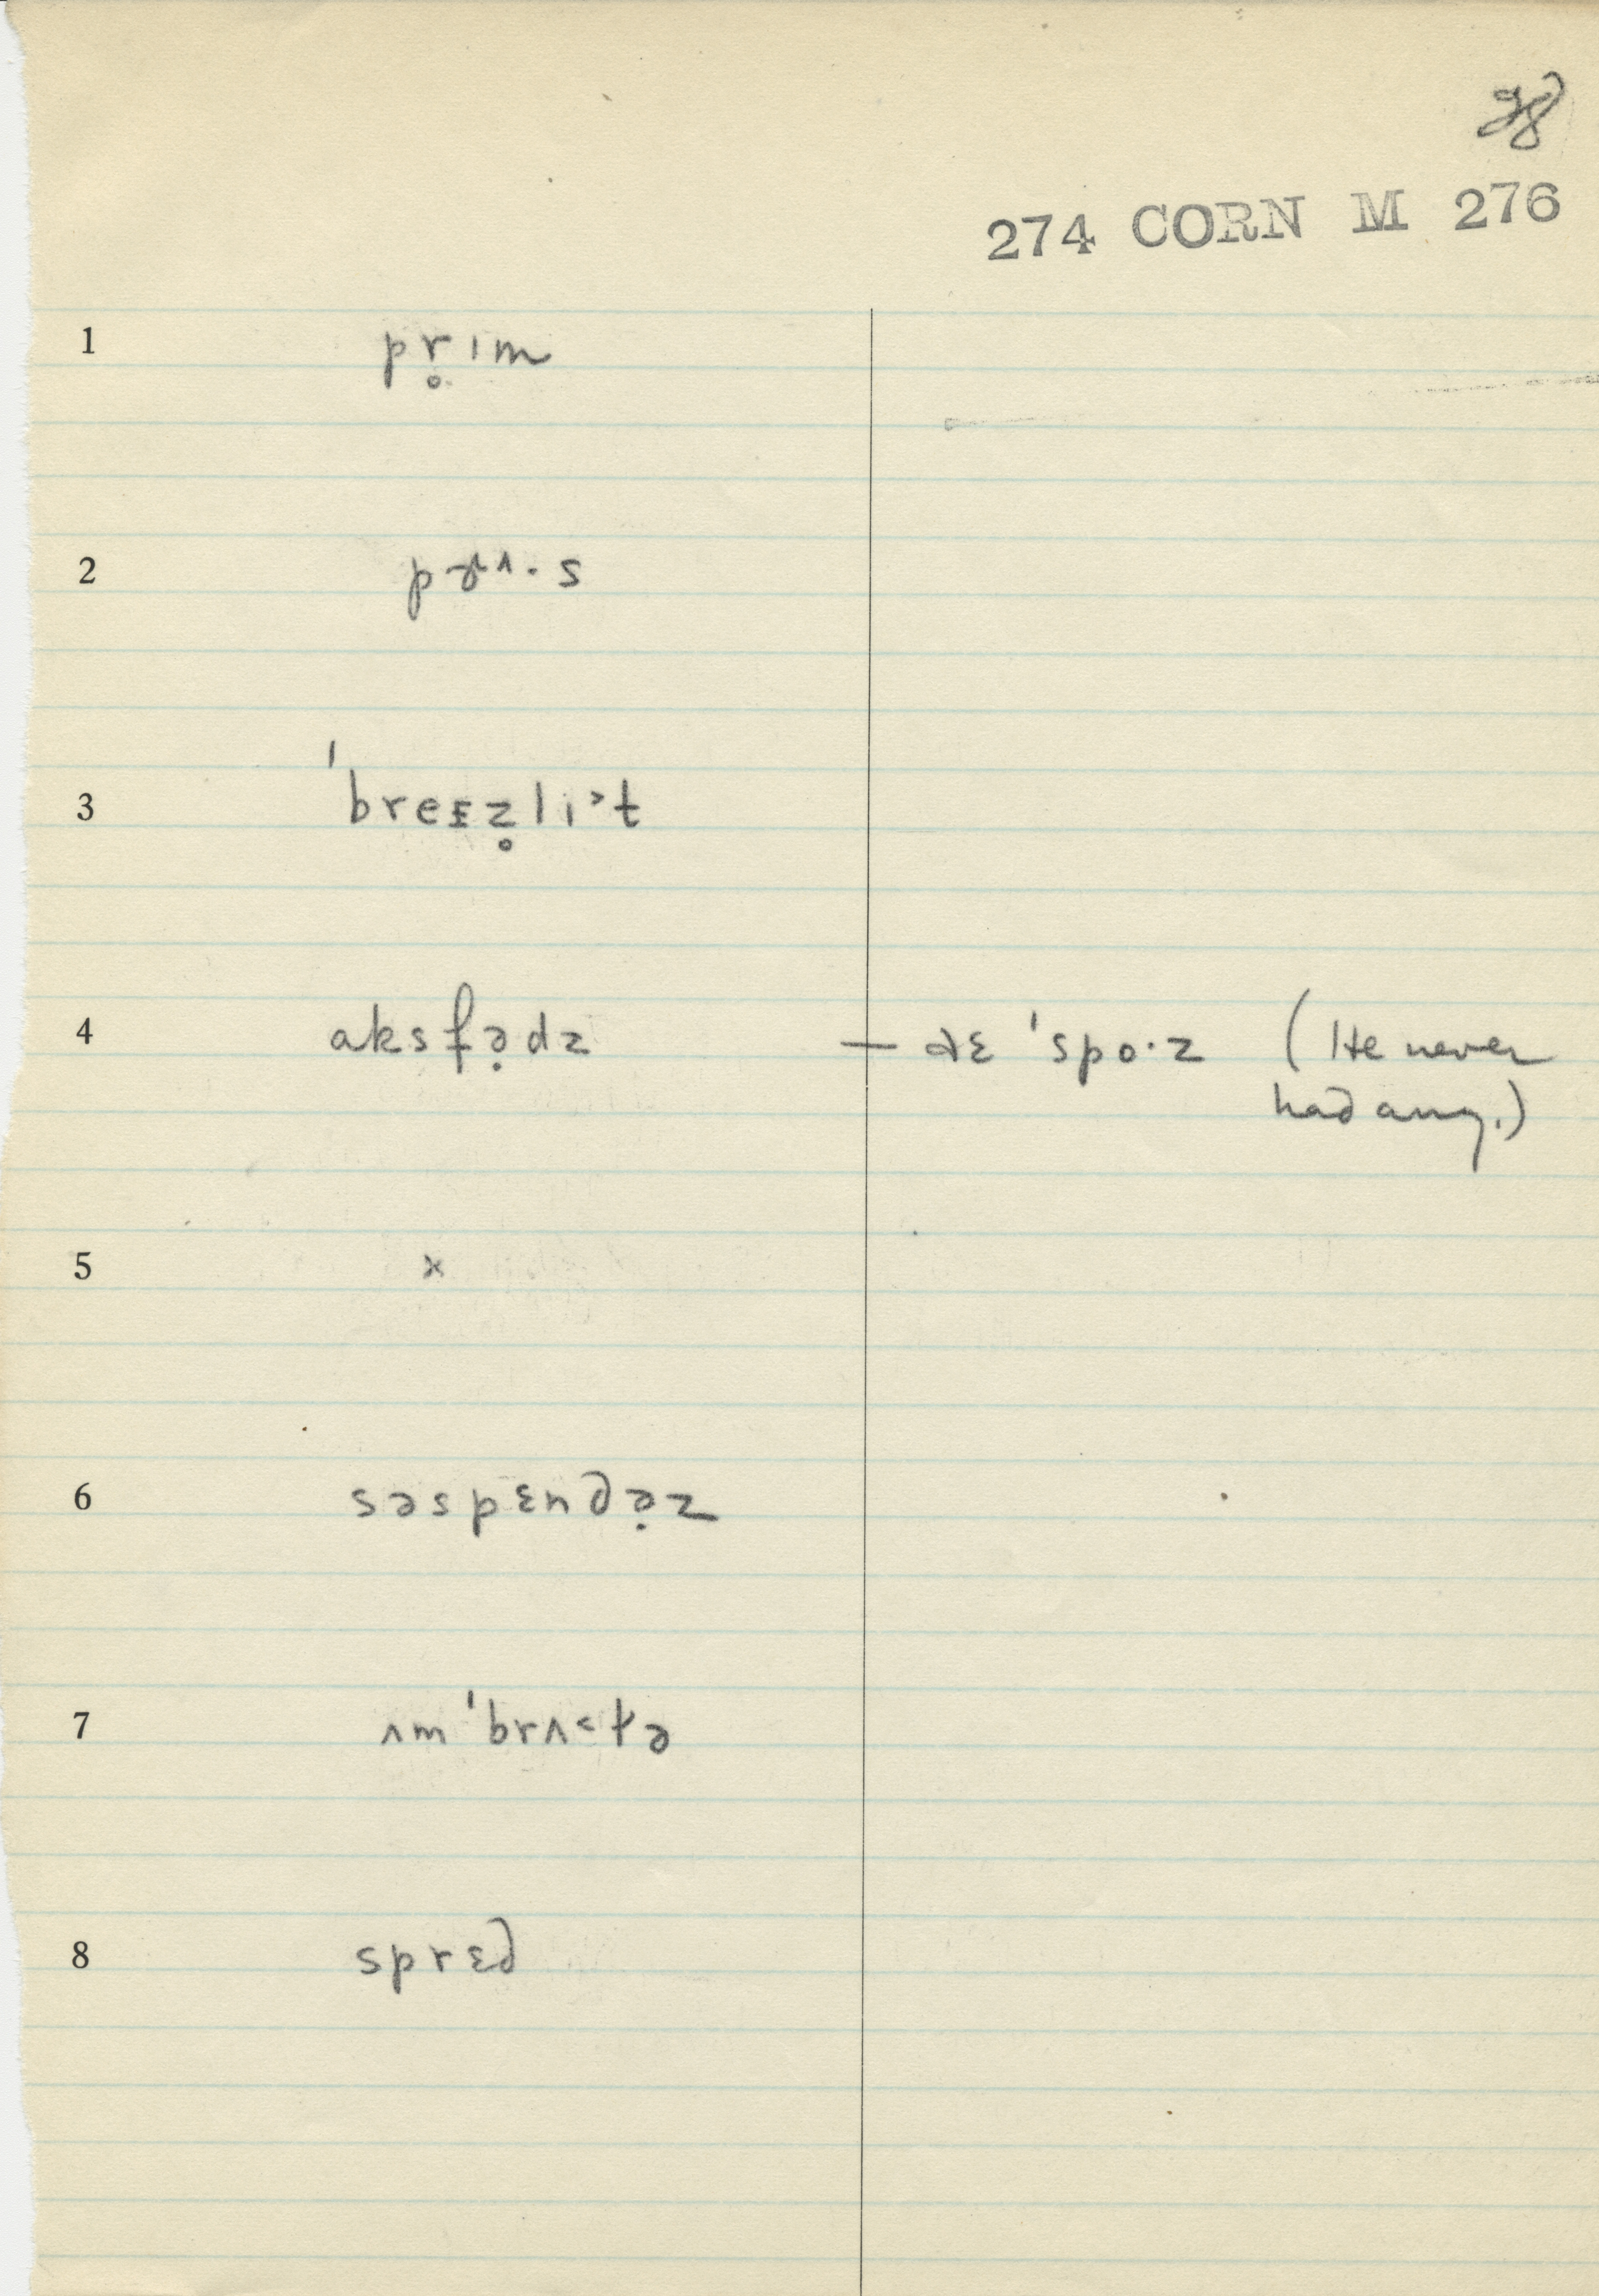 28
274 CORN M 276
1 pr̥ɪm
2 pɚʌ·s
3 ˈbreɪz̥li˃t
4 aksfə̣dz — dɛ ˈspo·z (He never
had any.)
5 x
6 səspɛndə̣z
7 ʌmˈbrʌ˂tə
8 sprɛd